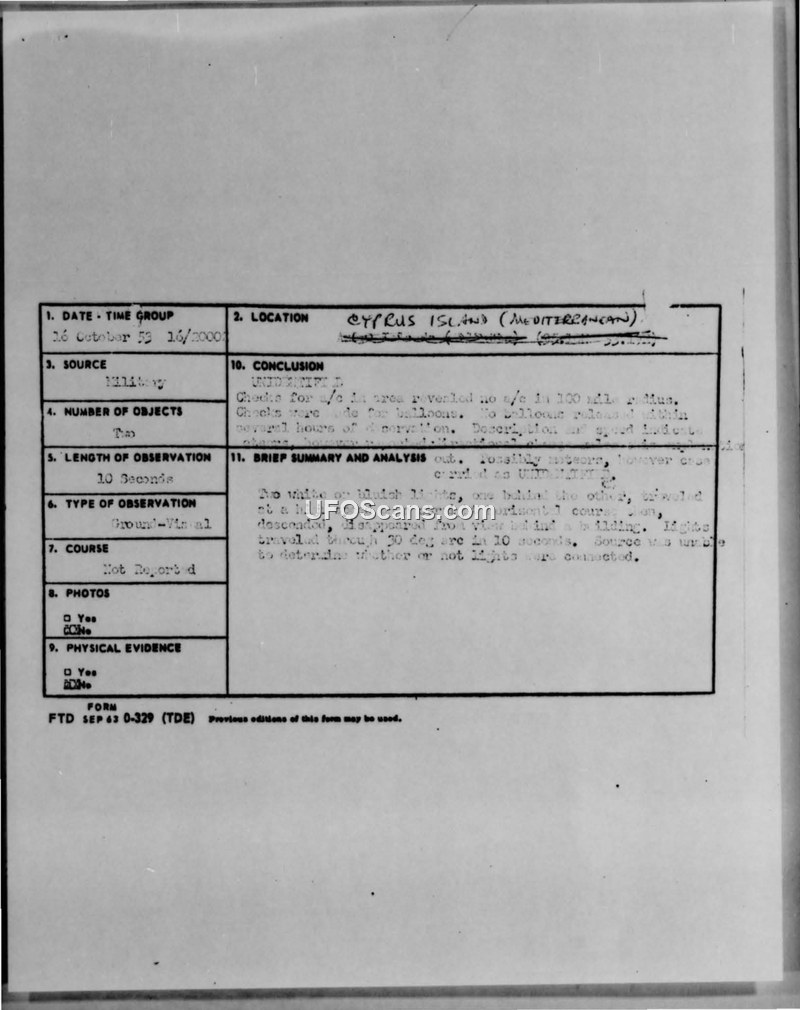 1. DATE - TIME GROUP
16 October 53 16/2000
2. LOCATION
CYPRUS ISLAND (MEDITERRANEAN)
3. SOURCE
Military
10. CONCLUSION
UNIDENTIFIED
Checks for a/c in area revealed no a/c in 100 mile radius.
Checks were made for balloons. No balloons released within
several hours of observation. Description and speed indicate
meteors, however reported directional change
4. NUMBER OF OBJECTS
Two
5. LENGTH OF OBSERVATION
10 Seconds
11. BRIEF SUMMARY AND ANALYSIS
out. Possibly meteors, however case
carried as UNIDENTIFIED.
Two white or bluish lights, one behind the other, traveled
at a course then,
descended, disappeared from view behind a building. Lights
traveled through 30 deg arc in 10 seconds. Source was unable
to determine whether or not lights were connected.
6. TYPE OF OBSERVATION
Ground-Visual
7. COURSE
Not Reported
8. PHOTOS
□ Yes
No
9. PHYSICAL EVIDENCE
□ Yes
No
FORM
FTD SEP 63 0-329 (TDE) Previous editions of this form may be used.
UFOScans.com